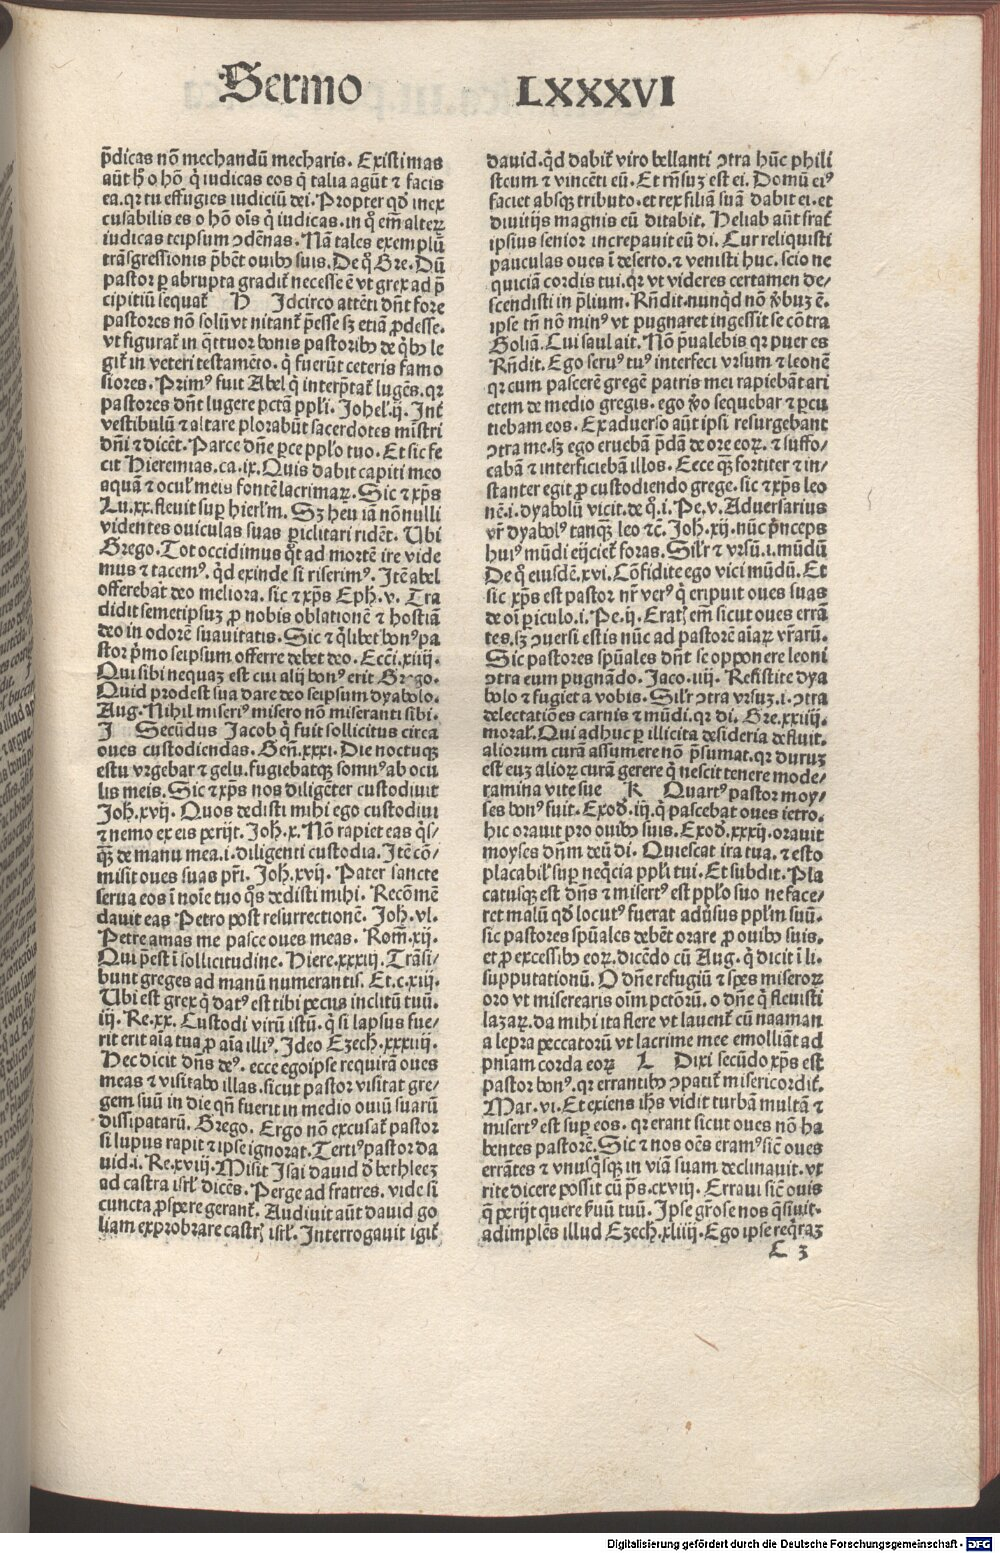 Sermo LXXXVI
p̄dicas nō mechandū mecharis. Existimas
aūt h̄ o hō q̇ iudicas eos q̇ talia agūt ⁊ facis
ea.qꝛ tu effugies iudiciū dei. Propter qd̓ inex
cusabilis es o hō oīs q̇ iudicas.in q̊ em̄ alterꝝ
iudicas teipsum ↄdēnas. Nā tales exemplū
trāsgressionis p̄bēt ouibꝰ suis. De q̊ Gre. Dū
pastor ꝑ abrupta gradit̄ necesse ē vt grex ad p̄
cipitiū sequat̄ H Idcirco attēti dn̄t fore
pastores nō solū vt nitant̄ p̄esse sꝫ etiā ꝓdesse.
vt figurat̄ in q̄ttuor bonis pastoribꝰ de q̇bꝰ le
git̄ in veteri testamēto. q̇ fuerūt ceteris famo
siores. Primꝰ fuit Abel q̇ interp̄tat̄ lugēs.qꝛ
pastores dn̄t lugere pctā ppl̓i. Johel.ij. Int̄
vestibulū ⁊ altare plorabūt sacerdotes mīstri
dn̄i ⁊ dicēt. Parce dn̄e ꝑce ppl̓o tuo. Et sic fe
cit Hieremias.ca.ix. Quis dabit capiti meo
aquā ⁊ ocul̓ meis fontē lacrimaꝝ. Sic ⁊ xp̄s
Lu.xx. fleuit suꝑ hierl̓m. Sꝫ heu iā nōnulli
videntes ouiculas suas ꝑiclitari ridēt. Ubi
Grego. Tot occidimus q̊t ad mortē ire vide
mus ⁊ tacemꝰ. qd̓ exinde si riserimꝰ. Itē abel
offerebat deo meliora. sic ⁊ xp̄s Eph̓.v. Tra
didit semetipsuꝫ ꝓ nobis oblationē ⁊ hostiā
deo in odorē suauitatis. Sic ⁊ q̇libet bonꝰ pa
stor p̄mo seipsum offerre debet deo. Ecci̓.xiiij.
Qui sibi nequaꝫ est cui alij bonꝰ erit Grego.
Quid prodest sua dare deo seipsum dyabolo.
Aug. Nihil miseriꝰ misero nō miseranti sibi.
J Secūdus Jacob q̇ fuit sollicitus circa
oues custodiendas. Geń.xxxi. Die noctuqꝫ
estu vrgebar ⁊ gelu. fugiebatqꝫ somnꝰ ab ocu
lis meis. Sic ⁊ xp̄s nos diligēter custodiuit
Joh̓.xvij. Quos dedisti mihi ego custodiui
⁊ nemo ex eis perijt. Joh̓.x. Nō rapiet eas q̇s/
qꝫ de manu mea.i.diligenti custodia. Itē cō/
misit oues suas pr̄i. Joh̓.xvij. Pater sancte
serua eos ī noīe tuo q̊s dedisti mihi. Recōmē
dauit eas Petro post resurrectionē. Joh̓.vl.
Petre amas me pasce oues meas. Rom̄.xij.
Qui p̄est ī sollicitudine. Hiere.xxxiij. Trāsi/
bunt greges ad manū numerantis. Et.c.xiij.
Ubi est grex q̇ datꝰ est tibi pecus inclitū tuū.
iij. Re.xx. Custodi virū istū. q̇ si lapsus fue/
rit erit aīa tua ꝓ aīa illiꝰ. Ideo Ezech.xxxiiij.
Hec dicit dn̄s deꝰ. ecce egoipse requirā oues
meas ⁊ visitabo illas. sicut pastor visitat gre/
gem suū in die qn̄ fuerit in medio ouiū suarū
dissipatarū. Grego. Ergo nō excusat̄ pastor
si lupus rapit ⁊ ipse ignorat. Tertiꝰ pastor da
uid.i. Re.xviij. Misit Isai dauid d̓ bethleeꝫ
ad castra isrl̓ dicēs. Perge ad fratres. vide si
cuncta ꝓspere gerant̄. Audiuit aūt dauid go
liam exprobrare castrꝭ isrl̓. Interrogauit igit̄
dauid. qd̓ dabit̄ viro bellanti ↄtra hūc phili
steum ⁊ vincēti eū. Et rn̄suꝫ est ei. Domū eiꝰ
faciet absqꝫ tributo. et rex filiā suā dabit ei. et
diuitijs magnis eū ditabit. Heliab aūt frat̄
ipsius senior increpauit eū di. Cur reliquisti
pauculas oues ī deserto. ⁊ venisti huc. scio ne
quiciā cordis tui. qꝛ vt videres certamen de/
scendisti in p̄lium. Rn̄dit. nunqd̓ nō v̓buꝫ ē.
ipse tn̄ nō minꝰ vt pugnaret ingessit se cōtra
Goliā. Cui saul ait. Nō p̄ualebis qꝛ puer es
Rn̄dit. Ego seruꝰ tuꝰ interfeci vrsum ⁊ leonē
qꝛ cum pascerē gregē patris mei rapiebāt ari
etem de medio gregis. ego v̓o sequebar ⁊ ꝑcu
tiebam eos. Ex aduerso aūt ipsi resurgebant
ↄtra me. sꝫ ego eruebā p̄dā de ore eoꝝ. ⁊ suffo/
cabā ⁊ interficiebā illos. Ecce qꝫ fortiter ⁊ in/
stanter egit ꝓ custodiendo grege. sic ⁊ xp̄s leo
nē.i.dyabolū vicit. de q̊.i. Pe.v. Aduersarius
vr̄ dyabolꝰ tanqꝫ leo ⁊c̄. Joh̓.xij. nūc p̄nceps
huiꝰ mūdi eijciet̄ foras. Sil̓r ⁊ vrsū.i.mūdū
De q̊ eiusdē.xvi. Cōfidite ego vici mūdū. Et
sic xp̄s est pastor nr̄ verꝰ q̇ eripuit oues suas
de oī ꝑiculo.i. Pe.ij. Eratꝭ em̄ sicut oues errā
tes. sꝫ ↄuersi estis nūc ad pastorē aīaꝝ vr̄arū.
Sic pastores spūales dn̄t se opponere leoni
ↄtra eum pugnādo. Jaco.iiij. Resistite dya
bolo ⁊ fugiet a vobis. Sil̓r ↄtra vrsuꝫ.i.ↄtra
delectatiōes carnis ⁊ mūdi. qꝛ di. Gre.xxiiij.
moral̓. Qui adhuc ꝑ illicita desideria defluit.
aliorum curā assumere nō p̄sumat. qꝛ duruꝫ
est euꝫ alioꝝ curā gerere q̇ nescit tenere mode/
ramina vite sue K Quartꝰ pastor moy/
ses bonꝰ fuit. Exod̓.iij. q̇ pascebat oues ietro.
hic orauit pro ouibꝰ suis. Exod̓.xxxij. orauit
moyses dn̄m deū di. Quiescat ira tua. ⁊ esto
placabil̓ suꝑ neq̇cia ppl̓i tui. Et subdit. Pla
catusqꝫ est dn̄s ⁊ misertꝰ est ppl̓o suo ne face/
ret malū qd̓ locutꝰ fuerat adu̓sus ppl̓m suū.
sic pastores spūales debēt orare ꝓ ouibꝰ suis.
et ꝓ excessibꝰ eoꝝ. dicēdo cū Aug. q̇ dicit ī li.
supputationū. O dn̄e refugiū ⁊ spes miseroꝝ
oro vt miserearis oīm pctōrū. o dn̄e q̇ fleuisti
lazaꝝ. da mihi ita flere vt lauent̄ cū naaman
a lepra peccatorū vt lacrime mee emolliāt ad
pn̄iam corda eoꝝ L Dixi secūdo xp̄s est
pastor bonꝰ. qꝛ errantibꝰ ↄpatit̄ misericordit̄.
Mar.vi. Et exiens ih̄s vidit turbā multā ⁊
misertꝰ est suꝑ eos. qꝛ erant sicut oues nō ha
bentes pastorē. Sic ⁊ nos oēs eramꝰ sic̄ oues
errātes ⁊ vnusq̇sqꝫ in viā suam declinauit. vt
rite dicere possit cū p̄s.cxviij. Erraui sic̄ ouis
q̄ perijt quere s̓uū tuū. Ipse gr̄ose nos q̄siuit.
adimplēs illud Ezech.xliiij. Ego ipse req̇raꝫ
L 3
Digitalisierung gefördert durch die Deutsche Forschungsgemeinschaft - DFG